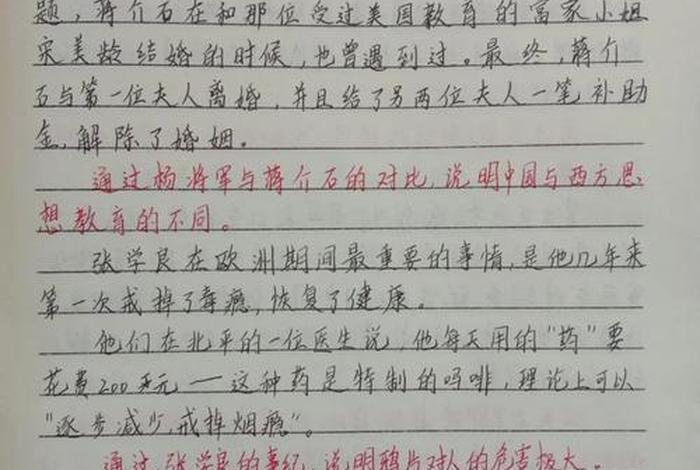 题，蒋介石在和那位受过美国教育的富家小姐
宋美龄结婚的时候，也曾遇到过。最终，蒋介
石与第一位夫人离婚，并且给了另两位夫人一笔补助
金，解除了婚姻。
通过杨将军与蒋介石的对比，说明中国与西方思
想教育的不同。
张学良在欧洲期间最重要的事情，是他几年来
第一次戒掉了毒瘾，恢复了健康。
他们在北平的一位医生说，他每天用的“药”要
花费200美元——这种药是特制的吗啡，理论上可以
“逐步减少，戒掉烟瘾”。
通过张学良的事纪，说明鸦片对人的危害极大。